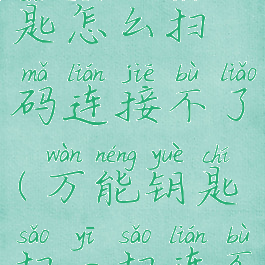 匙怎么扫
mǎ lián jiē bù liǎo
码连接不了
wàn néng yuè chí
(万能钥匙
sǎo yī sǎo lián bù
扫一扫连不